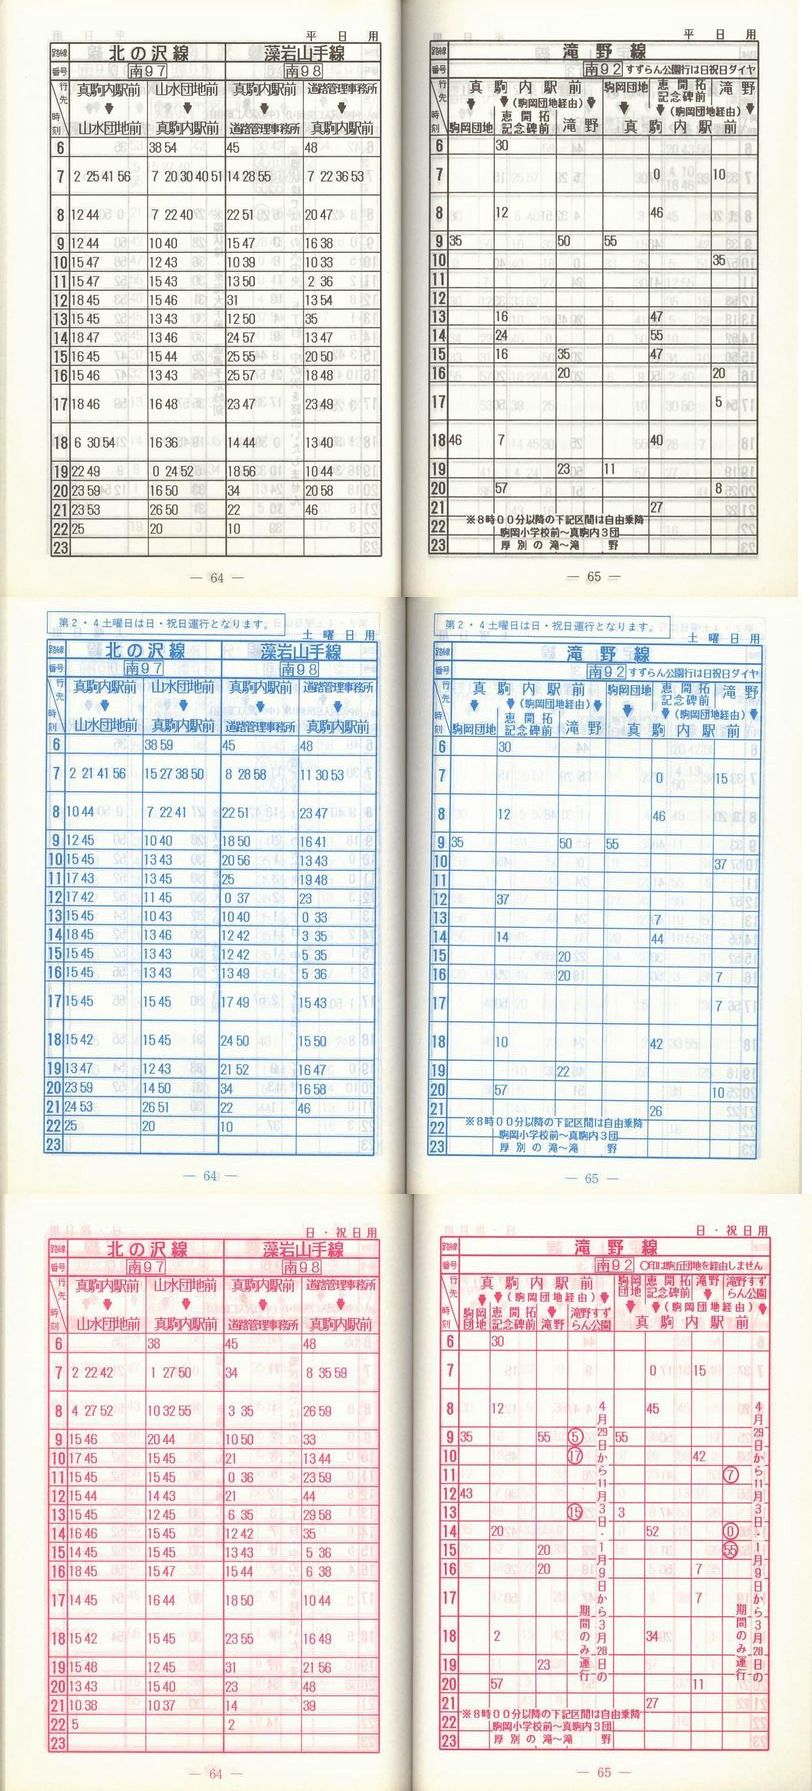 平 日 用
路線 北の沢線 藻岩山手線
番号 南97 南98
行先 真駒内駅前 山水団地前 真駒内駅前 道路管理事務所
時刻 山水団地前 真駒内駅前 道路管理事務所 真駒内駅前
6 38 54 45 48
7 2 25 41 56 7 20 30 40 51 14 28 55 7 22 36 53
8 12 44 7 22 40 22 51 20 47
9 12 44 10 40 15 47 16 38
10 15 47 12 43 10 39 10 33
11 15 47 15 43 13 50 2 36
12 18 45 15 46 31 13 54
13 15 45 13 43 12 50 35
14 18 47 13 46 24 57 13 47
15 16 45 15 44 25 55 20 50
16 15 46 13 43 25 57 18 48
17 18 46 16 48 23 47 23 49
18 6 30 54 16 36 14 44 13 40
19 22 49 0 24 52 18 56 10 44
20 23 59 16 50 34 20 58
21 23 53 26 50 22 46
22 25 20 10
23
— 64 —
平 日 用
路線 滝野線
番号 南92 すずらん公園行は日祝日ダイヤ
行先 真駒内駅前 駒岡団地 恵開拓記念碑前 滝野
(駒岡団地経由) (駒岡団地経由)
時刻 駒岡団地 恵開拓記念碑前 滝野 真駒内駅前
6 30
7 0 10
8 12 46
9 35 50 55
10 35
11
12
13 16 47
14 24 55
15 16 35 47
16 20 20
17 5
18 46 7 40
19 23 11
20 57 8
21 27
22 ※8時00分以降の下記区間は自由乗降
駒岡小学校前〜真駒内3団
23 厚別の滝〜滝野
— 65 —
第2・4土曜日は日・祝日運行となります。
土 曜 日 用
路線 北の沢線 藻岩山手線
番号 南97 南98
行先 真駒内駅前 山水団地前 真駒内駅前 道路管理事務所
時刻 山水団地前 真駒内駅前 道路管理事務所 真駒内駅前
6 38 59 45 48
7 2 21 41 56 15 27 38 50 8 28 58 11 30 53
8 10 44 7 22 41 22 51 23 47
9 12 45 10 40 18 50 16 41
10 15 45 13 43 20 56 13 43
11 17 43 13 45 25 19 48
12 17 42 11 45 0 37 23
13 15 45 10 43 10 40 0 33
14 18 45 13 46 12 42 3 35
15 15 45 13 43 12 42 5 35
16 15 45 13 43 13 49 5 36
17 15 45 15 45 17 49 15 43
18 15 42 15 45 24 50 15 50
19 13 47 12 43 21 52 16 47
20 23 59 14 50 34 16 58
21 24 53 26 51 22 46
22 25 20 10
23
— 64 —
第2・4土曜日は日・祝日運行となります。
土 曜 日 用
路線 滝野線
番号 南92 すずらん公園行は日祝日ダイヤ
行先 真駒内駅前 駒岡団地 恵開拓記念碑前 滝野
(駒岡団地経由) (駒岡団地経由)
時刻 駒岡団地 恵開拓記念碑前 滝野 真駒内駅前
6 30
7 0 15
8 12 46
9 35 50 55
10 37
11
12 37
13 7
14 14 44
15 20
16 20 7
17 7
18 10 42
19 22
20 57 10
21 26
22 ※8時00分以降の下記区間は自由乗降
駒岡小学校前〜真駒内3団
23 厚別の滝〜滝野
— 65 —
日・祝日用
路線 北の沢線 藻岩山手線
番号 南97 南98
行先 真駒内駅前 山水団地前 真駒内駅前 道路管理事務所
時刻 山水団地前 真駒内駅前 道路管理事務所 真駒内駅前
6 38 45 48
7 2 22 42 1 27 50 34 8 35 59
8 4 27 52 10 32 55 3 35 26 59
9 15 46 20 44 10 50 33
10 17 45 15 45 21 13 44
11 15 45 15 45 0 36 23 59
12 15 44 14 43 21 44
13 15 45 12 45 6 35 29 58
14 16 46 15 45 12 42 35
15 14 45 15 45 13 43 5 36
16 18 45 15 47 15 44 6 38
17 14 45 16 44 18 50 10 44
18 15 42 15 45 23 55 16 49
19 15 48 12 45 31 21 56
20 13 43 15 40 23 48
21 10 38 10 37 14 39
22 5 2
23
— 64 —
日・祝日用
路線 滝野線
番号 南92 〇印は駒丘団地を経由しません
行先 真駒内駅前 駒岡団地 恵開拓記念碑前 滝野 滝野すずらん公園
(駒岡団地経由) (駒岡団地経由)
時刻 駒岡団地 恵開拓記念碑前 滝野 滝野すずらん公園 真駒内駅前
6 30
7 0 15
8 12 45
9 35 55 ⑤ 55
10 ⑰ 42
11 ⑦
12 43
13 ⑮ 3
14 20 52 ⓪
15 20 55
16 20 7
17 7
18 2 34
19 23
20 57 11
21 27
22 ※8時00分以降の下記区間は自由乗降
駒岡小学校前〜真駒内3団
23 厚別の滝〜滝野
4月29日から11月3日・1月9日から3月28日の
期間のみ運行
4月29日から11月3日・1月9日から3月28日の
期間のみ運行
— 65 —